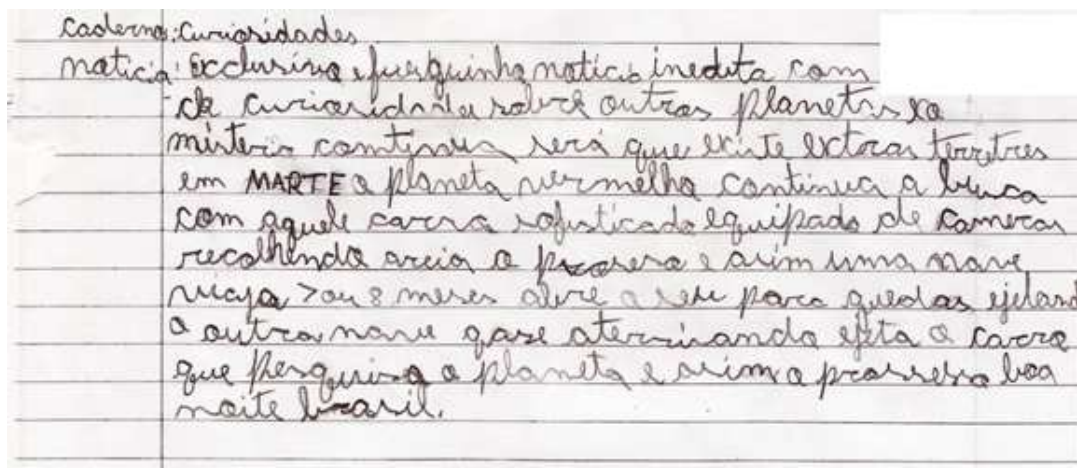 caderno: curiosidades
noticia: Exclusiva e fresquinha noticia inedita com
de curiosidade sobre outros planetas e o
misterio continua será que existe extras terretres
em MARTE o planeta vermelho continua a busca
com aquele carro sofisticado equipado de cameras
recolhendo areia o e asim uma nave
viaja 7 ou 8 meses abre a para quedas ejeland
a outra nave qase aterrisando ejeta o carro
que pesquisa o planeta e asim o prosseso boa
noite brasil.